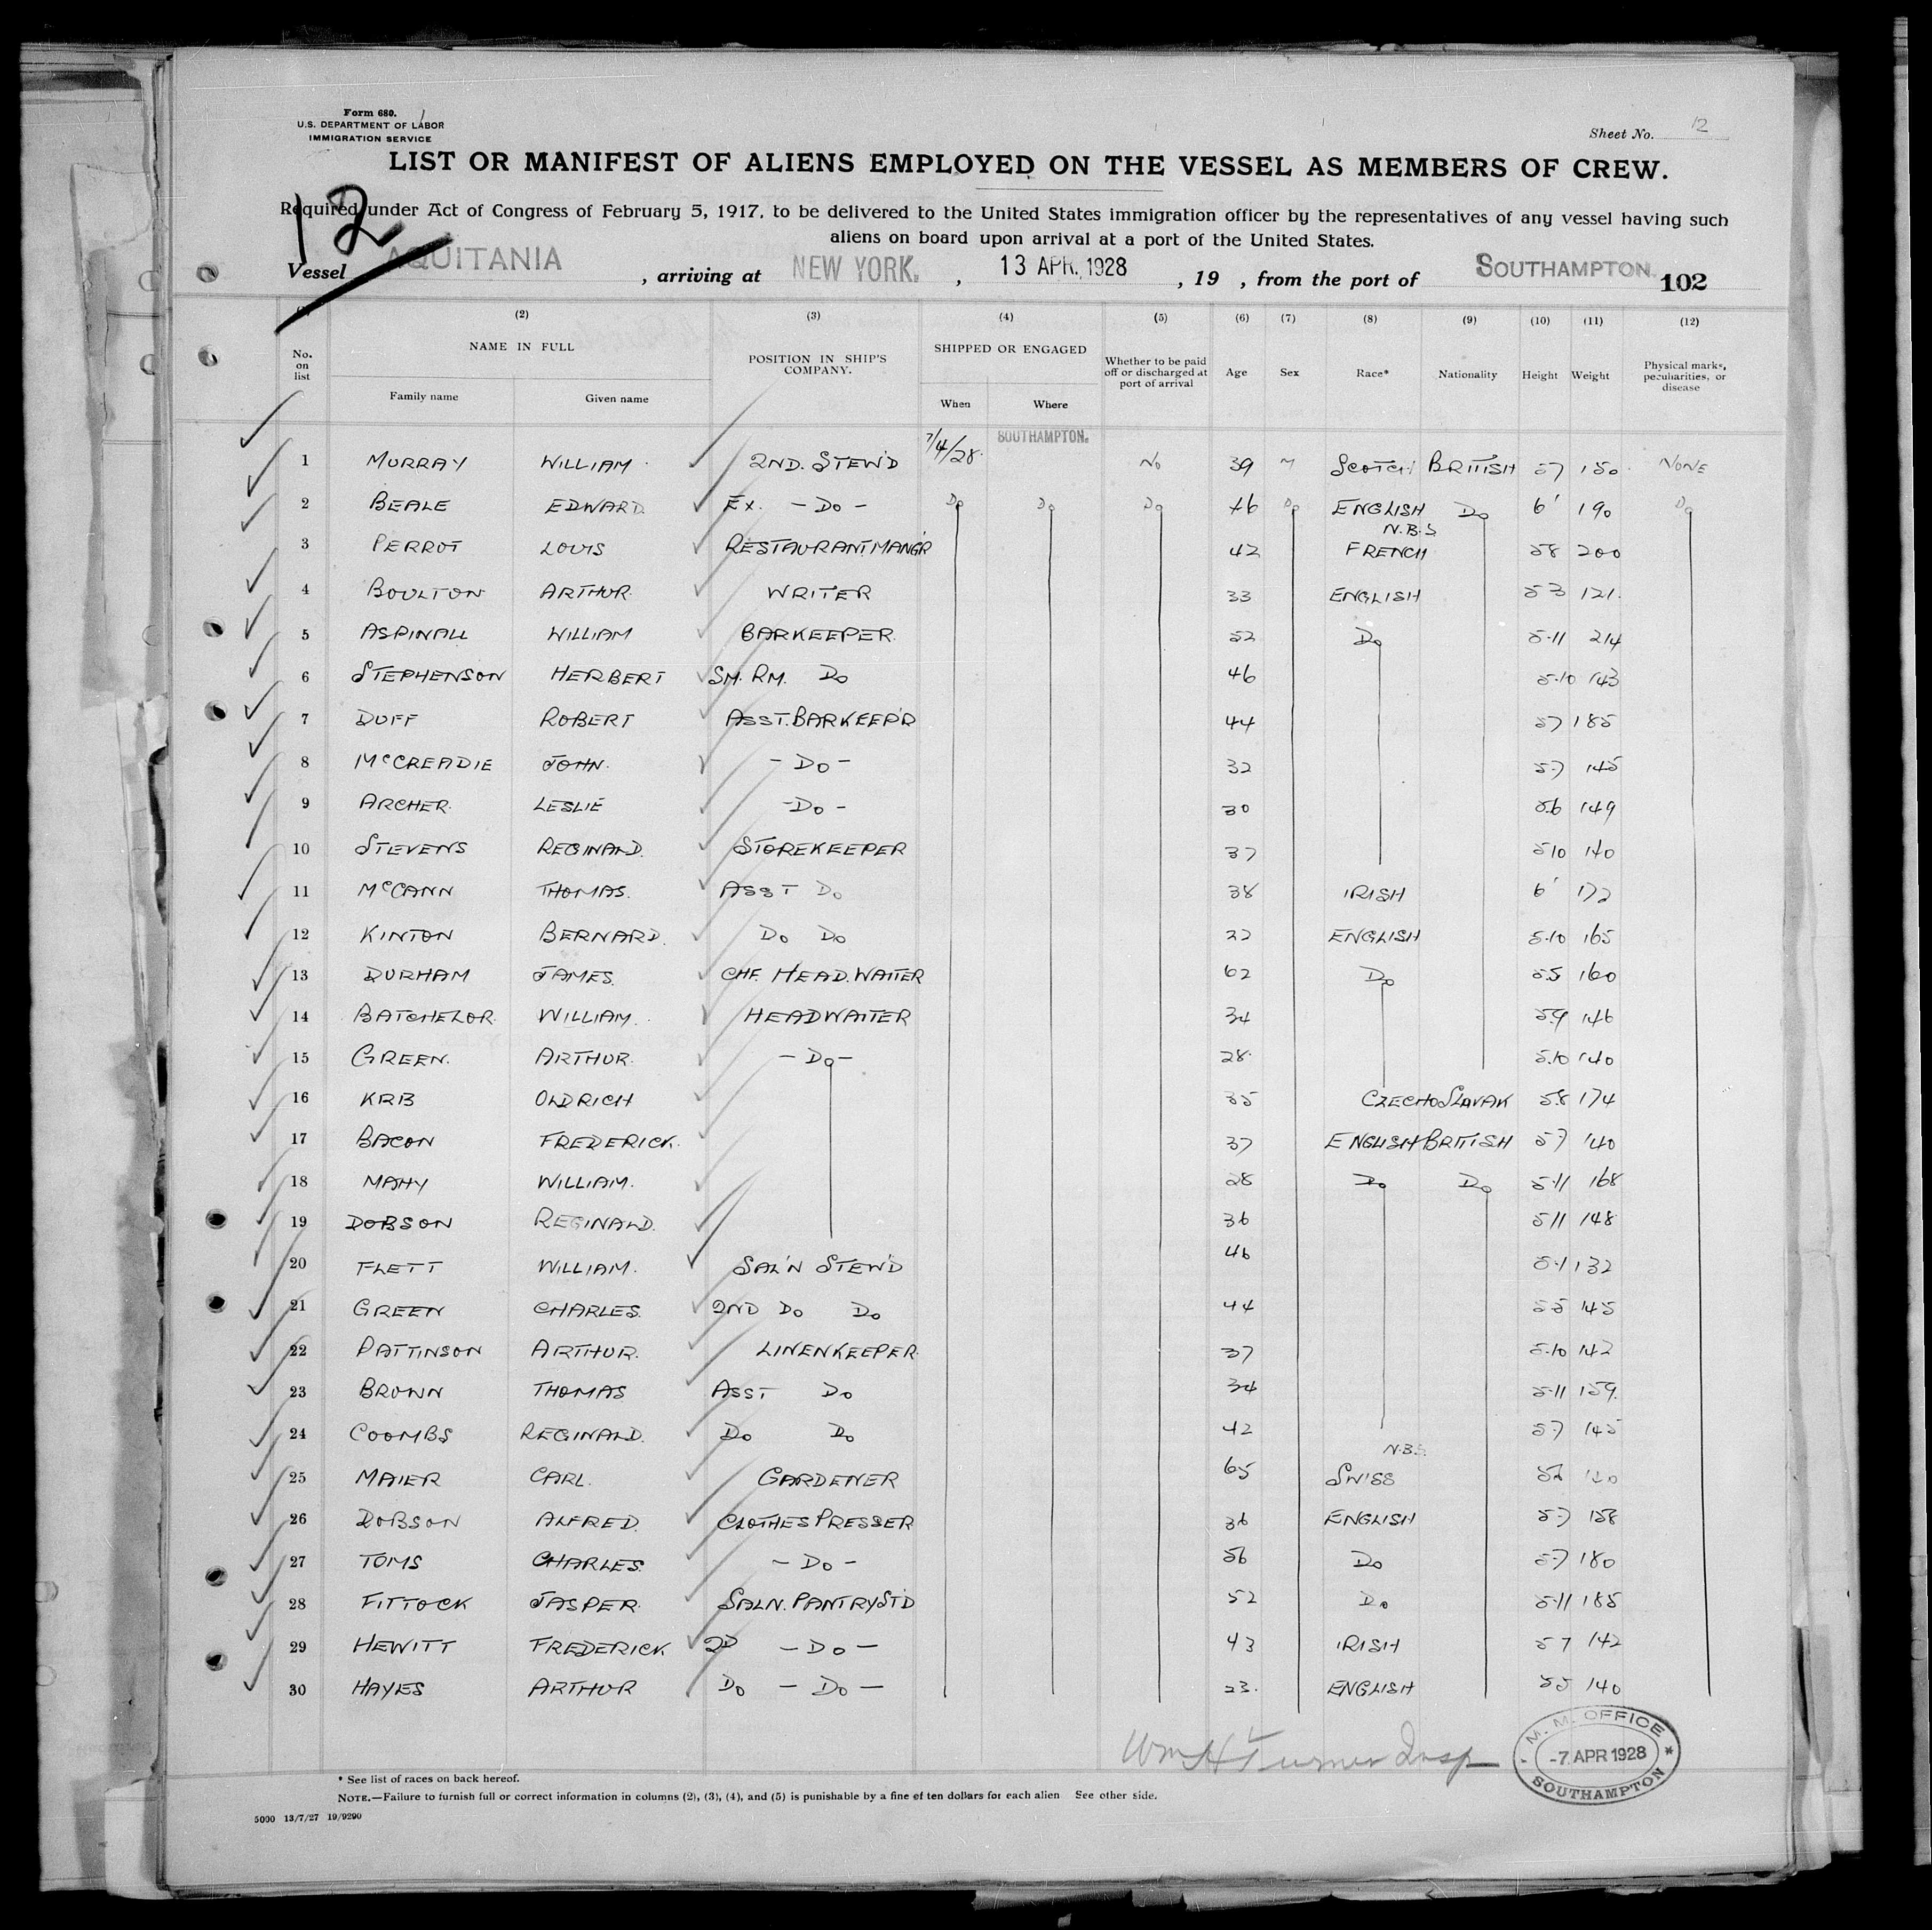 Form 680.
U.S. DEPARTMENT OF LABOR
IMMIGRATION SERVICE
Sheet No. 12
LIST OR MANIFEST OF ALIENS EMPLOYED ON THE VESSEL AS MEMBERS OF CREW.
12
Required under Act of Congress of February 5, 1917, to be delivered to the United States immigration officer by the representatives of any vessel having such
aliens on board upon arrival at a port of the United States.
Vessel AQUITANIA , arriving at NEW YORK. , 13 APR. 1928 , 19 , from the port of SOUTHAMPTON. 102
(2) (3) (4) (5) (6) (7) (8) (9) (10) (11) (12)
No. on list NAME IN FULL Family name Given name POSITION IN SHIP'S COMPANY. SHIPPED OR ENGAGED When Where Whether to be paid off or discharged at port of arrival Age Sex Race* Nationality Height Weight Physical marks, peculiarities, or disease
1 MURRAY WILLIAM 2ND. STEW'D 7/4/28 SOUTHAMPTON. No 39 M SCOTCH BRITISH 57 150 NONE
2 BEALE EDWARD Ex. - Do - Do Do Do 46 Do ENGLISH Do 6' 190 Do
3 PERROT LOUIS RESTAURANT MANG'R 42 N.B.S FRENCH 58 200
4 BOULTON ARTHUR. WRITER 33 ENGLISH 53 121.
5 ASPINALL WILLIAM BARKEEPER. 52 Do 5.11 214
6 STEPHENSON HERBERT SM. RM. Do 46 5.10 143
7 DUFF ROBERT ASST. BARKEEP'R 44 57 185
8 McCREADIE JOHN. - Do - 32 5.7 145
9 ARCHER. LESLIE - Do - 30 5.6 149
10 STEVENS REGINALD. STOREKEEPER 37 510 140
11 McCANN THOMAS. ASST Do 38 IRISH 6' 172
12 KINTON BERNARD. Do Do 22 ENGLISH 5.10 165
13 DURHAM JAMES. CHF. HEAD. WAITER 62 Do 5.5 160
14 BATCHELOR. WILLIAM. HEADWAITER 34 5.9 146
15 GREEN. ARTHUR. - Do - 28. 5.10 140
16 KRB OLDRICH 35 CZECHOSLAVAK 5.8 174
17 BACON FREDERICK. 37 ENGLISH BRITISH 5.7 140
18 MAHY WILLIAM. 28 Do Do 5.11 168
19 DOBSON REGINALD. 36 5 11 148
20 FLETT WILLIAM. SAL'N STEW'D 46 5.1 132
21 GREEN CHARLES. 2ND Do Do 44 5.5 145
22 PATTINSON ARTHUR. LINENKEEPER. 37 5.10 142
23 BROWN THOMAS ASST Do 34 5.11 159.
24 COOMBS REGINALD. Do Do 42 57 145
25 MAIER CARL. GARDENER 65 N.B.S. SWISS
26 DOBSON ALFRED. CLOTHES PRESSER 36 ENGLISH 5.7 158
27 TOMS CHARLES. - Do - 56 Do 5.7 180
28 FITTOCK JASPER. SALN. PANTRY ST'D 52 Do 5.11 185
29 HEWITT FREDERICK 2D - Do - 43 IRISH 5 7 142
30 HAYES ARTHUR Do - Do - 23. ENGLISH 55 140
Wm H Turner Insp
M. M. OFFICE
-7 APR 1928
SOUTHAMPTON
* See list of races on back hereof.
NOTE.—Failure to furnish full or correct information in columns (2), (3), (4), and (5) is punishable by a fine of ten dollars for each alien See other side.
5000 13/7/27 19/9290